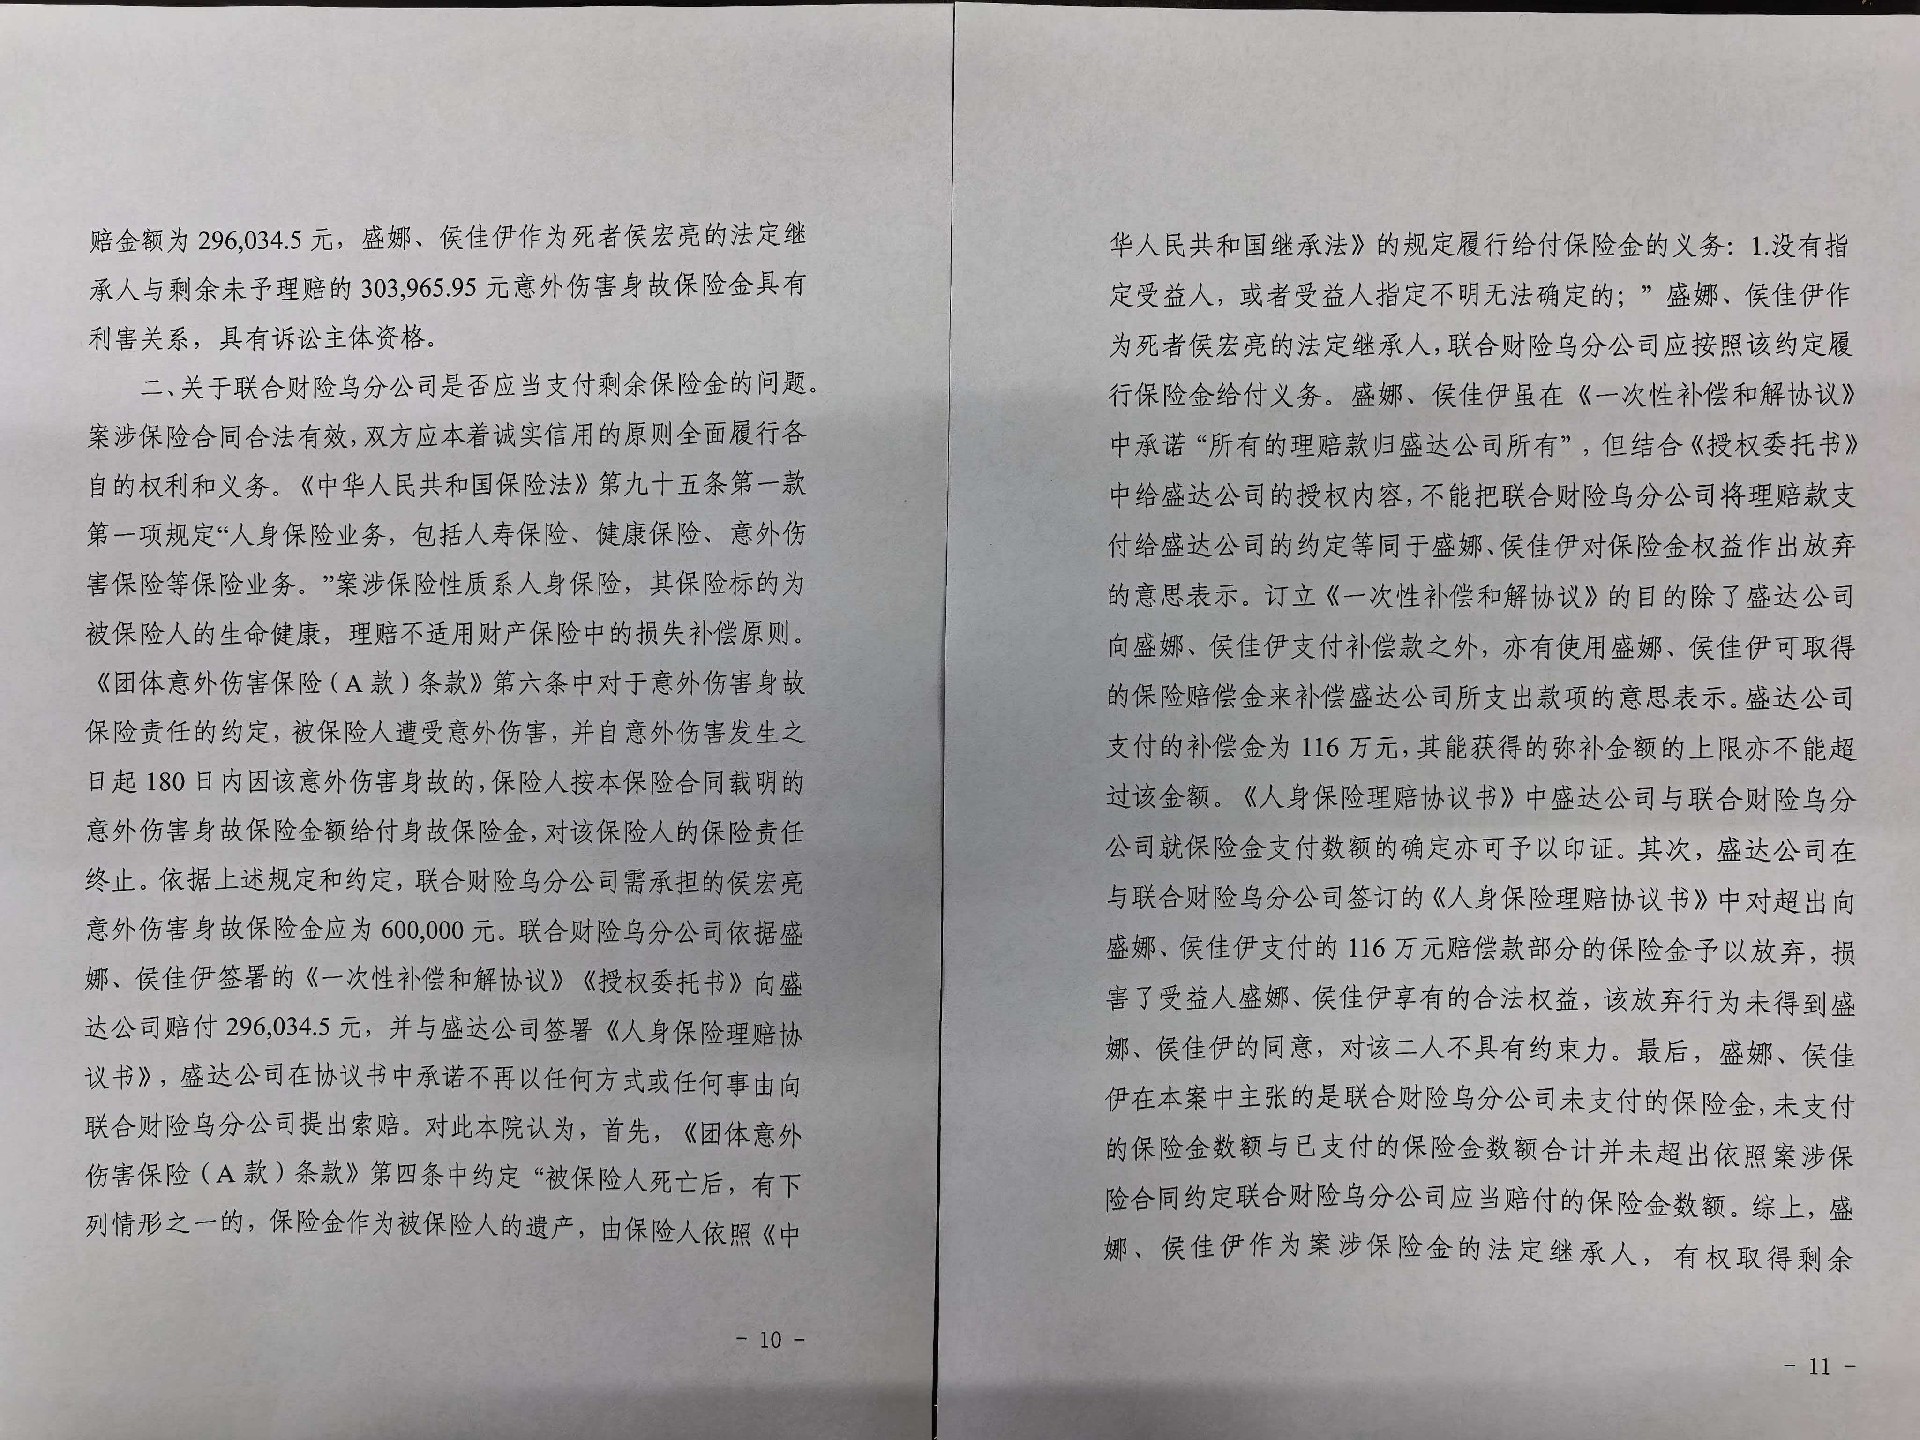 赔金额为 296,034.5 元，盛娜、侯佳伊作为死者侯宏亮的法定继
承人与剩余未予理赔的 303,965.95 元意外伤害身故保险金具有
利害关系，具有诉讼主体资格。
二、关于联合财险乌分公司是否应当支付剩余保险金的问题。
案涉保险合同合法有效，双方应本着诚实信用的原则全面履行各
自的权利和义务。《中华人民共和国保险法》第九十五条第一款
第一项规定“人身保险业务，包括人寿保险、健康保险、意外伤
害保险等保险业务。”案涉保险性质系人身保险，其保险标的为
被保险人的生命健康，理赔不适用财产保险中的损失补偿原则。
《团体意外伤害保险（A 款）条款》第六条中对于意外伤害身故
保险责任的约定，被保险人遭受意外伤害，并自意外伤害发生之
日起 180 日内因该意外伤害身故的，保险人按本保险合同载明的
意外伤害身故保险金额给付身故保险金，对该保险人的保险责任
终止。依据上述规定和约定，联合财险乌分公司需承担的侯宏亮
意外伤害身故保险金应为 600,000 元。联合财险乌分公司依据盛
娜、侯佳伊签署的《一次性补偿和解协议》《授权委托书》向盛
达公司赔付 296,034.5 元，并与盛达公司签署《人身保险理赔协
议书》，盛达公司在协议书中承诺不再以任何方式或任何事由向
联合财险乌分公司提出索赔。对此本院认为，首先，《团体意外
伤害保险（A 款）条款》第四条中约定“被保险人死亡后，有下
列情形之一的，保险金作为被保险人的遗产，由保险人依照《中
- 10 -
华人民共和国继承法》的规定履行给付保险金的义务：1.没有指
定受益人，或者受益人指定不明无法确定的；”盛娜、侯佳伊作
为死者侯宏亮的法定继承人，联合财险乌分公司应按照该约定履
行保险金给付义务。盛娜、侯佳伊虽在《一次性补偿和解协议》
中承诺“所有的理赔款归盛达公司所有”，但结合《授权委托书》
中给盛达公司的授权内容，不能把联合财险乌分公司将理赔款支
付给盛达公司的约定等同于盛娜、侯佳伊对保险金权益作出放弃
的意思表示。订立《一次性补偿和解协议》的目的除了盛达公司
向盛娜、侯佳伊支付补偿款之外，亦有使用盛娜、侯佳伊可取得
的保险赔偿金来补偿盛达公司所支出款项的意思表示。盛达公司
支付的补偿金为 116 万元，其能获得的弥补金额的上限亦不能超
过该金额。《人身保险理赔协议书》中盛达公司与联合财险乌分
公司就保险金支付数额的确定亦可予以印证。其次，盛达公司在
与联合财险乌分公司签订的《人身保险理赔协议书》中对超出向
盛娜、侯佳伊支付的 116 万元赔偿款部分的保险金予以放弃，损
害了受益人盛娜、侯佳伊享有的合法权益，该放弃行为未得到盛
娜、侯佳伊的同意，对该二人不具有约束力。最后，盛娜、侯佳
伊在本案中主张的是联合财险乌分公司未支付的保险金，未支付
的保险金数额与已支付的保险金数额合计并未超出依照案涉保
险合同约定联合财险乌分公司应当赔付的保险金数额。综上，盛
娜、侯佳伊作为案涉保险金的法定继承人，有权取得剩余
- 11 -